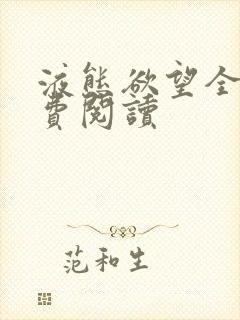 液態欲望全
費閱讀
范和生